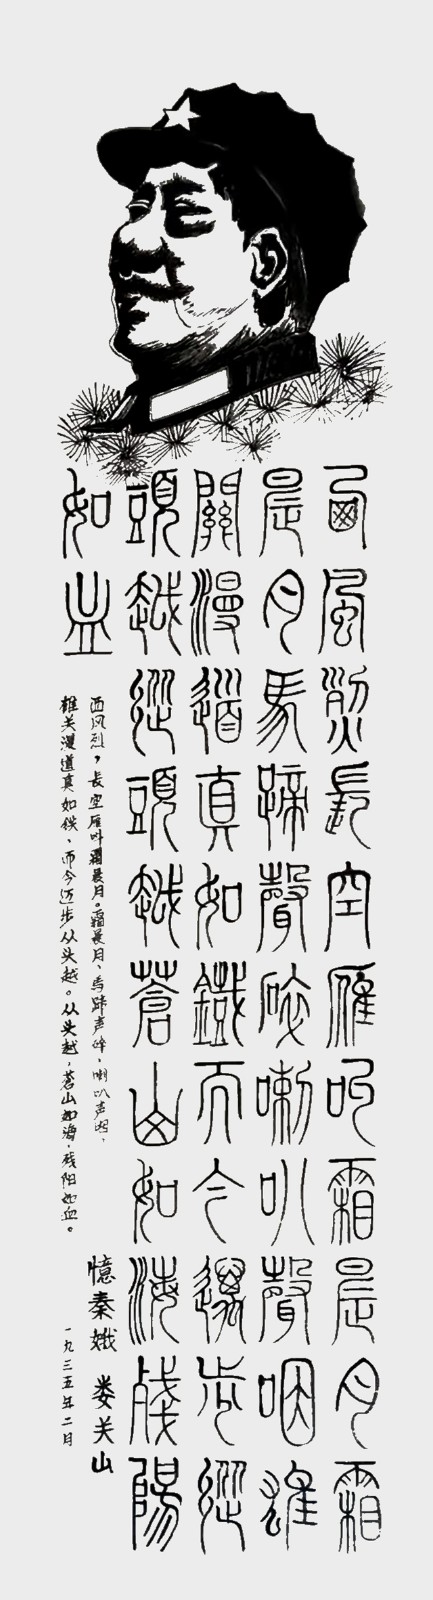 西風烈長空雁叫霜晨月霜
晨月馬蹄聲碎喇叭聲咽雄
關漫道真如鐵而今邁步從
頭越從頭越蒼山如海殘陽
如血
西风烈，长空雁叫霜晨月。霜晨月，马蹄声碎，喇叭声咽，
雄关漫道真如铁，而今迈步从头越。从头越，苍山如海，残阳如血。
憶秦娥 娄关山
一九三五年二月